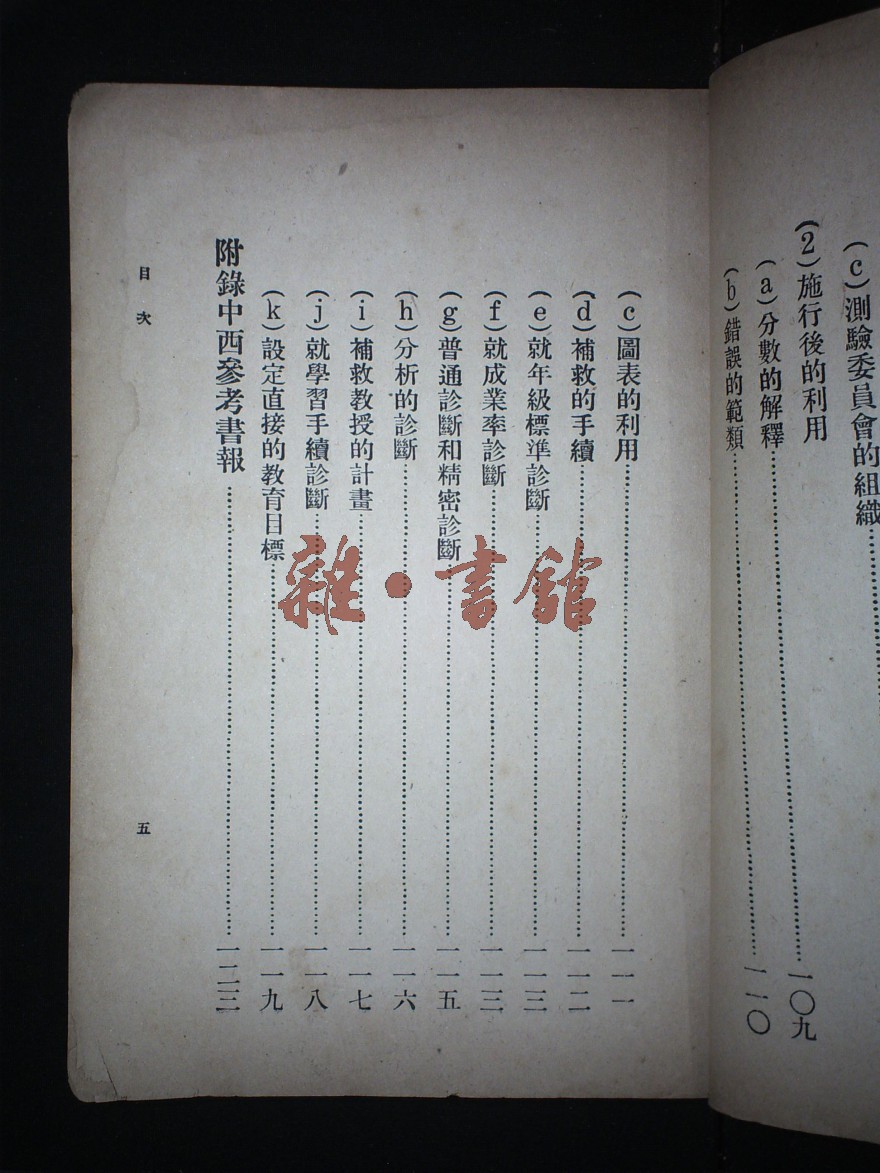 (c)測驗委員會的組織………
(2)施行後的利用
(a)分數的解釋………一〇九
(b)錯誤的範類………一一〇
(c)圖表的利用………一一一
(d)補救的手續………一一二
(e)就年級標準診斷………一一三
(f)就成業率診斷………一一三
(g)普通診斷和精密診斷………一一五
(h)分析的診斷………一一六
(i)補救教授的計畫………一一七
(j)就學習手續診斷………一一八
(k)設定直接的教育目標………一一九
附錄中西參考書報………一二三
目次
五
雜·書館